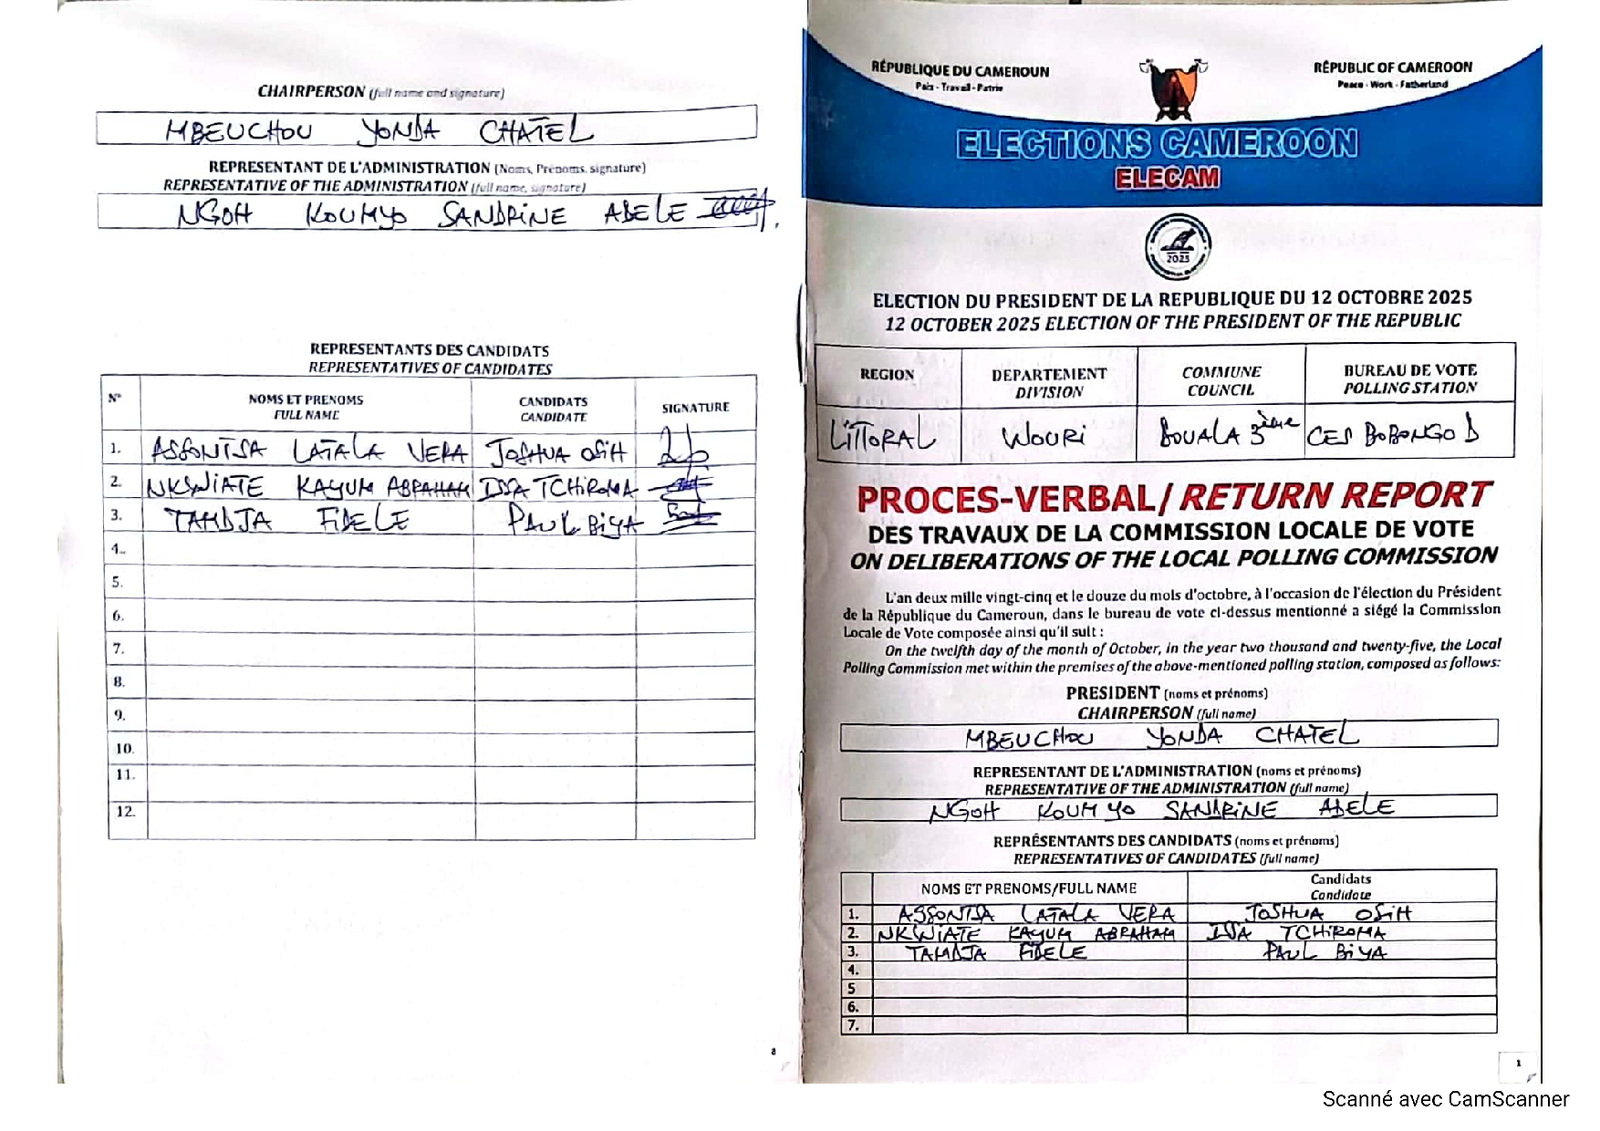 CHAIRPERSON (full name and signature)
MBEUCHOU YONDA CHATEL
REPRESENTANT DE L'ADMINISTRATION (Noms, Prénoms, signature)
REPRESENTATIVE OF THE ADMINISTRATION (full name, signature)
NGOH KOUMYO SANDRINE ADELE
REPRESENTANTS DES CANDIDATS
REPRESENTATIVES OF CANDIDATES
N° NOMS ET PRENOMS FULL NAME CANDIDATS CANDIDATE SIGNATURE
1. ASSONTSA LATALA VERA JOSHUA OSIH
2. NKWIATE KAYUM ABRAHAM ISSA TCHIROMA
3. TAMDJA FIDELE PAUL BIYA
4.
5.
6.
7.
8.
9.
10.
11.
12.
8
RÉPUBLIQUE DU CAMEROUN
Paix - Travail - Patrie
RÉPUBLIC OF CAMEROON
Peace - Work - Fatherland
ELECTIONS CAMEROON
ELECAM
2025
ELECTION DU PRESIDENT DE LA REPUBLIQUE DU 12 OCTOBRE 2025
12 OCTOBER 2025 ELECTION OF THE PRESIDENT OF THE REPUBLIC
REGION DEPARTEMENT DIVISION COMMUNE COUNCIL BUREAU DE VOTE POLLING STATION
LITTORAL WOURI DOUALA 3ième CES BOBONGO D
PROCES-VERBAL / RETURN REPORT
DES TRAVAUX DE LA COMMISSION LOCALE DE VOTE
ON DELIBERATIONS OF THE LOCAL POLLING COMMISSION
L'an deux mille vingt-cinq et le douze du mois d'octobre, à l'occasion de l'élection du Président
de la République du Cameroun, dans le bureau de vote ci-dessus mentionné a siégé la Commission
Locale de Vote composée ainsi qu'il suit :
On the twelfth day of the month of October, in the year two thousand and twenty-five, the Local
Polling Commission met within the premises of the above-mentioned polling station, composed as follows:
PRESIDENT (noms et prénoms)
CHAIRPERSON (full name)
MBEUCHOU YONDA CHATEL
REPRESENTANT DE L'ADMINISTRATION (noms et prénoms)
REPRESENTATIVE OF THE ADMINISTRATION (full name)
NGOH KOUMYO SANDRINE ADELE
REPRÉSENTANTS DES CANDIDATS (noms et prénoms)
REPRESENTATIVES OF CANDIDATES (full name)
NOMS ET PRENOMS/FULL NAME Candidats Candidate
1. ASSONTSA LATALA VERA JOSHUA OSIH
2. NKWIATE KAYUM ABRAHAM ISSA TCHIROMA
3. TAMDJA FIDELE PAUL BIYA
4.
5
6.
7.
1
Scanné avec CamScanner